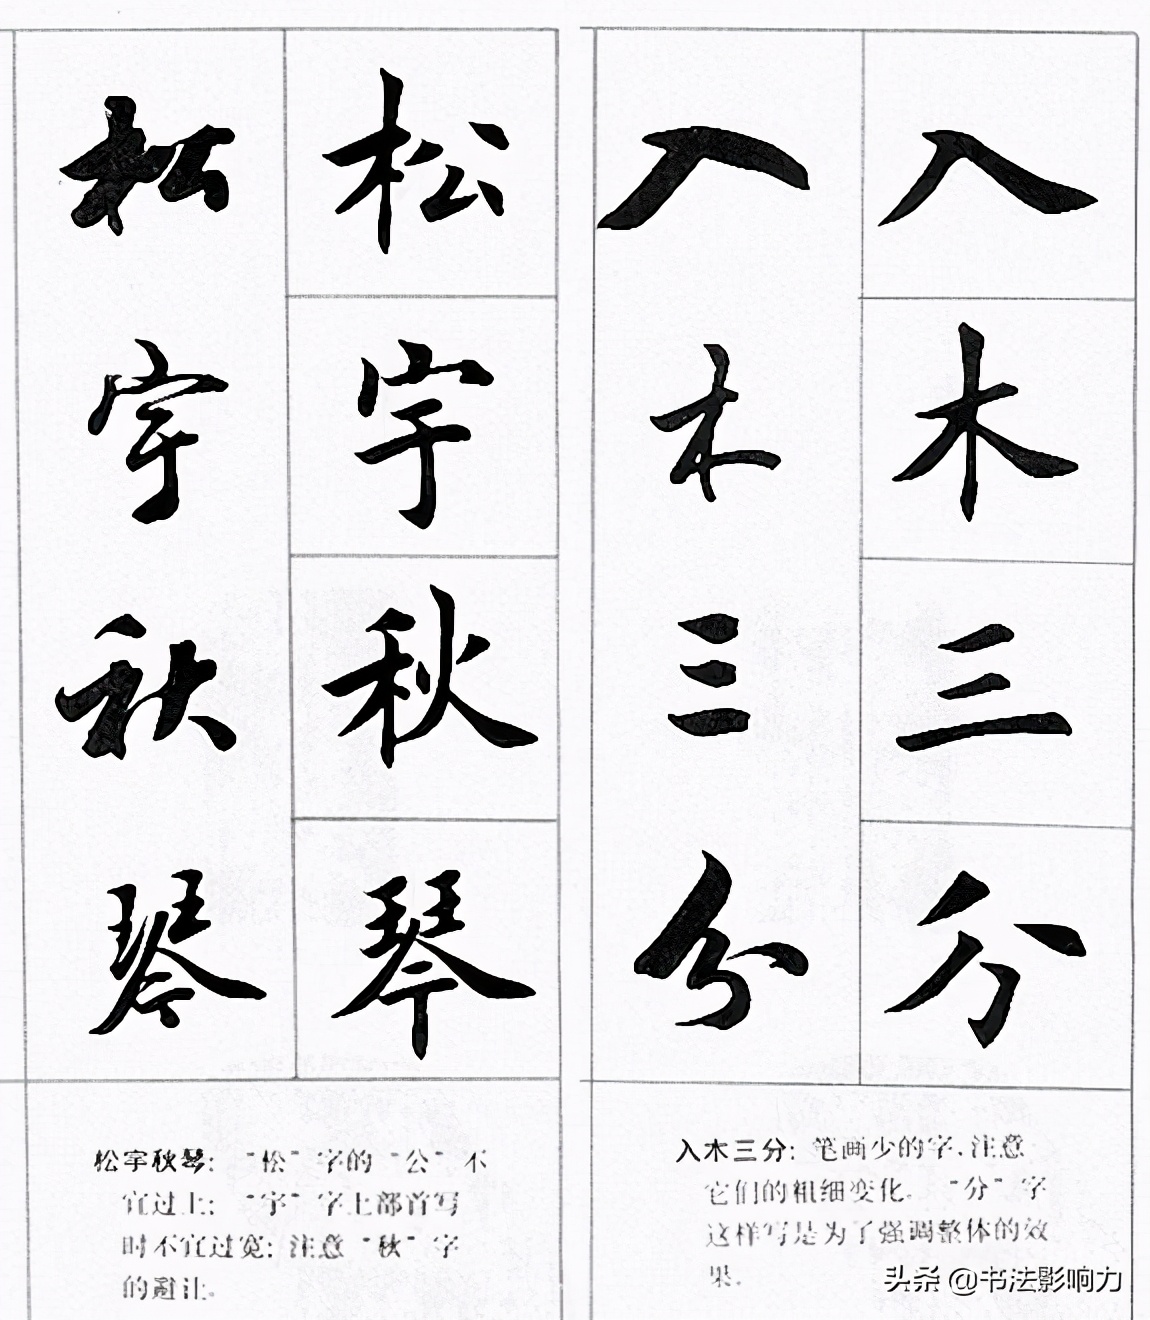 入木三分
入木三分
入木三分：笔画少的字，注意
它们的粗细变化。“分”字
这样写是为了强调整体的效
果。
松宇秋琴
松宇秋琴
松宇秋琴：“松”字的“公”不
宜过上；“宇”字上部首写
时不宜过宽；注意“秋”字
的避让。
头条 @书法影响力